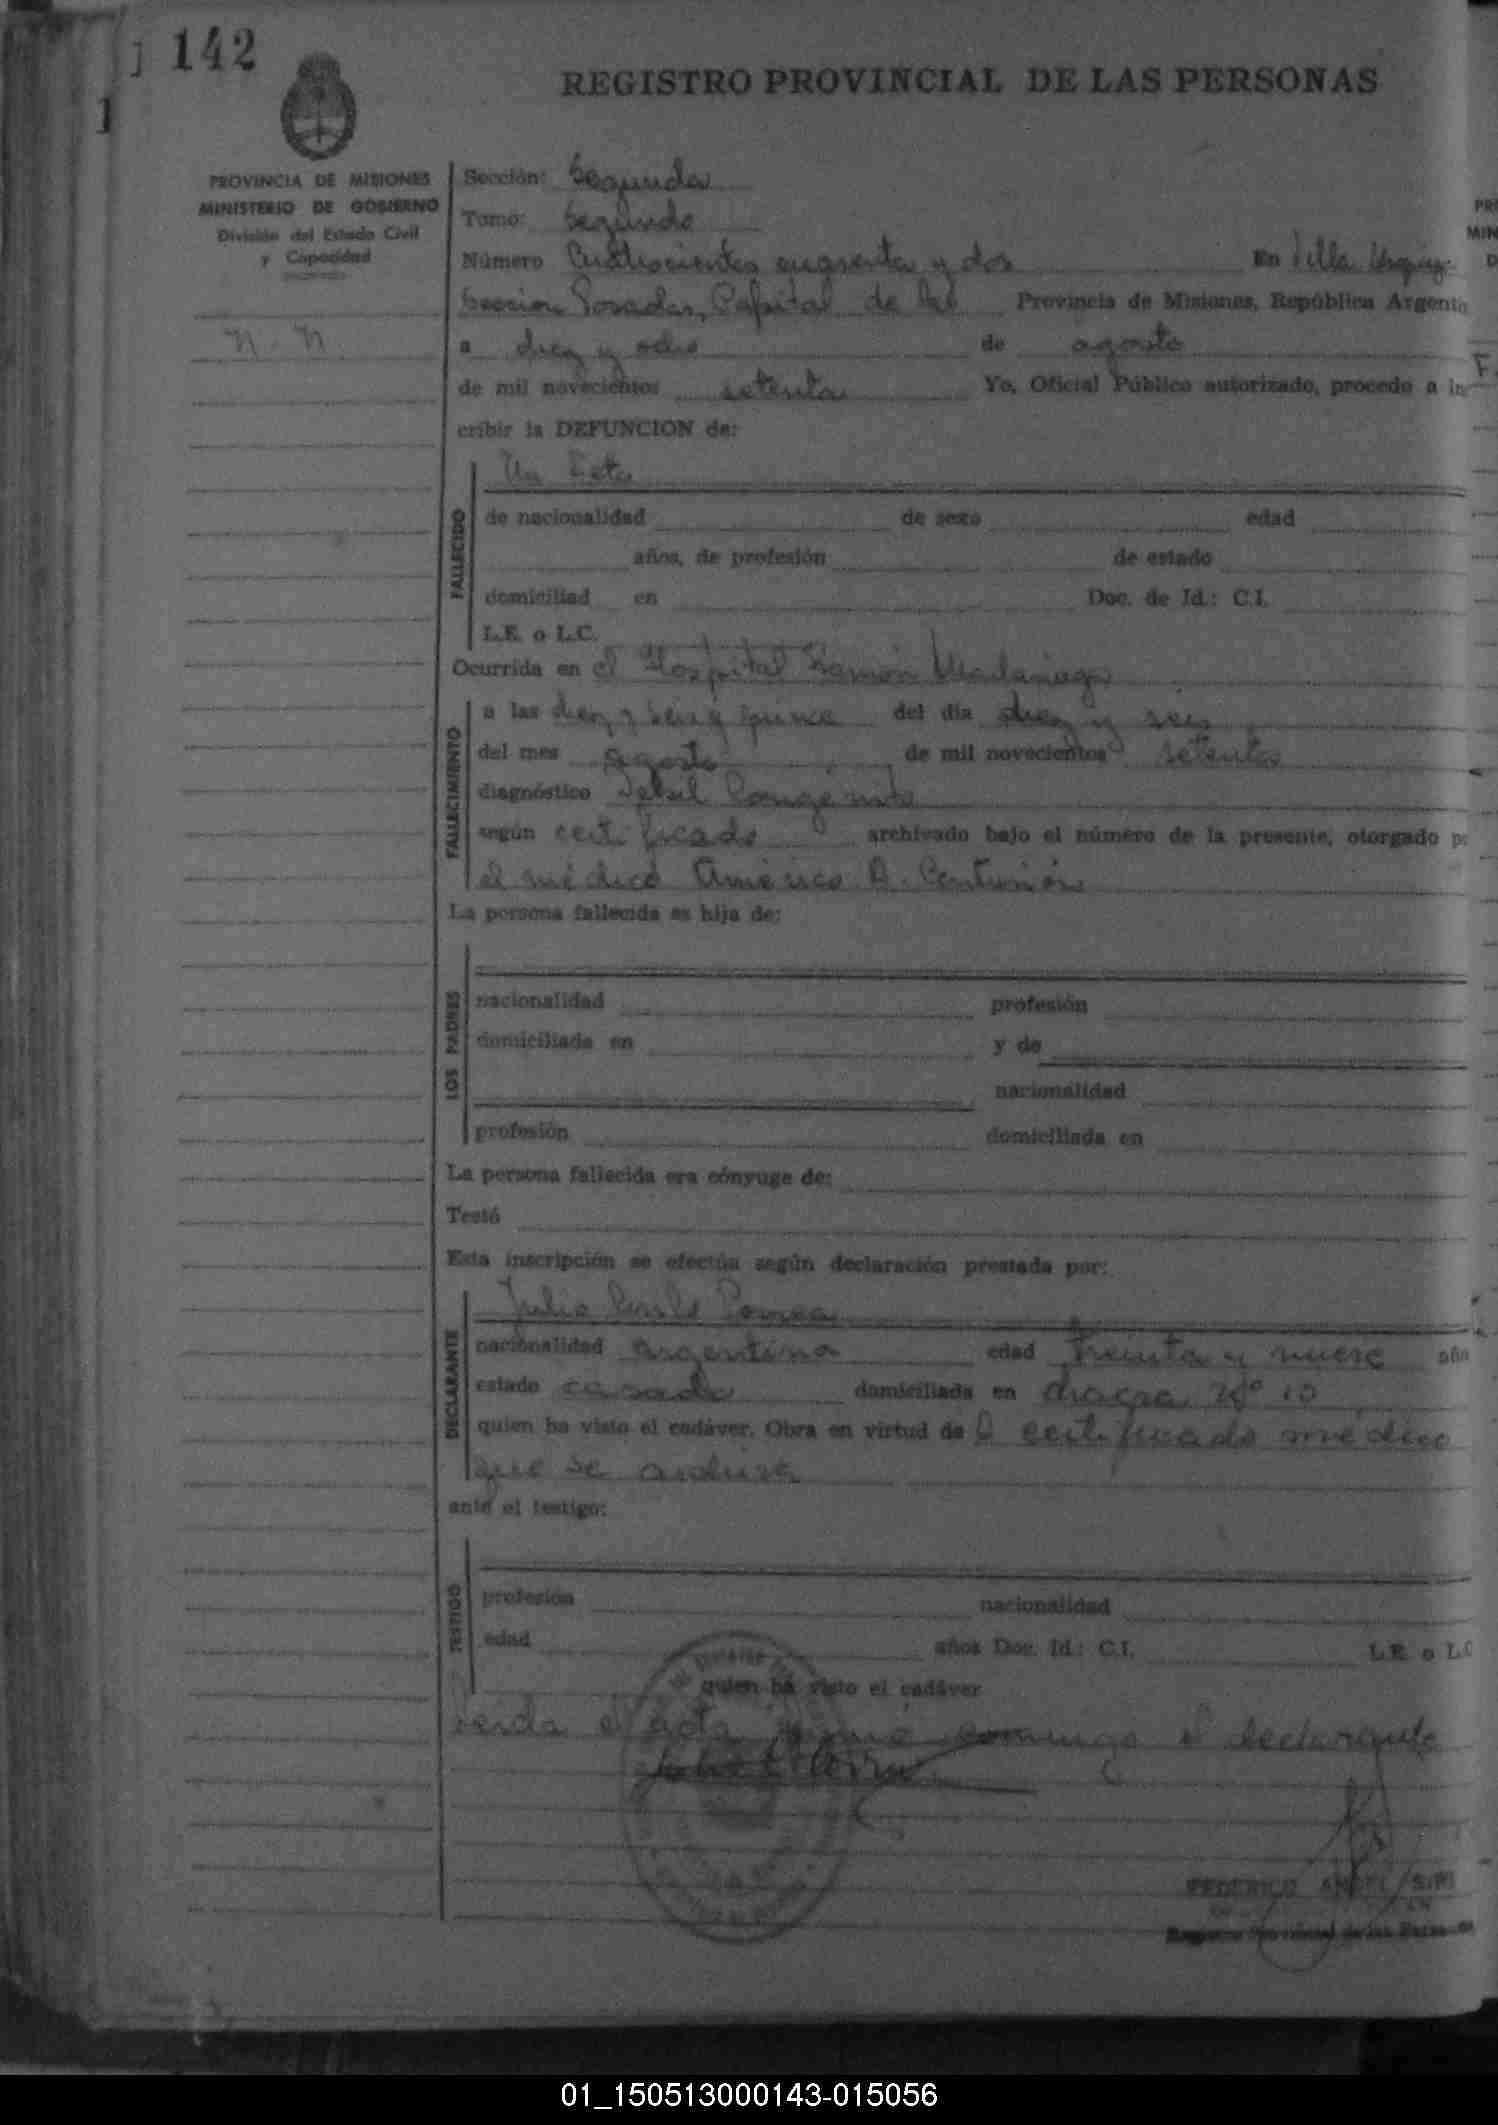 142
REGISTRO PROVINCIAL DE LAS PERSONAS
PROVINCIA DE MISIONES
MINISTERIO DE GOBIERNO
División del Estado Civil
y Capacidad
N. N
Sección: Segunda
Tomo: Segundo
Número Cuatrocientos cuarenta y dos En Villa Urquiz
Seccion Posadas, Capital de la Provincia de Misiones, República Argentin
a diez y ocho de agosto
de mil novecientos setenta Yo, Oficial Público autorizado, procedo a in
cribir la DEFUNCION de:
Un Feto
FALLECIDO
de nacionalidad de sexo edad
años, de profesión de estado
domiciliad en Doc. de Id.: C.I.
L.E. o L.C.
Ocurrida en el Hospital Ramón Madariaga
FALLECIMIENTO
a las diez y seis y quince del día diez y seis
del mes agosto de mil novecientos setenta
diagnóstico Debil Congénito
según certificado archivado bajo el número de la presente, otorgado po
el médico Américo A. Centurión
La persona fallecida es hija de:
LOS PADRES
nacionalidad profesión
domiciliada en y de
nacionalidad
profesión domiciliada en
La persona fallecida era cónyuge de:
Testó
Esta inscripción se efectúa según declaración prestada por:
DECLARANTE
Julio Correa
nacionalidad argentina edad treinta y nueve año
estado casado domiciliada en chacra Nº 10
quien ha visto el cadáver. Obra en virtud de l certificado médico
que se
ante el testigo:
TESTIGO
profesión nacionalidad
edad años Doc. Id.: C.I. L.E. o L.C
quien ha visto el cadáver
Leida el acta firmó conmigo el declarante
FEDERICO ANGEL SIRI
Registro Provincial de las Personas
01_150513000143-015056